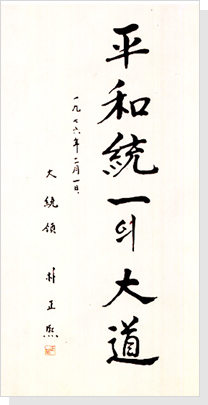 平和統一의 大道
一九七六年 二月 一日
大統領 朴正熙